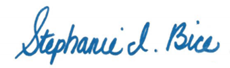 Stephanie I. Bice